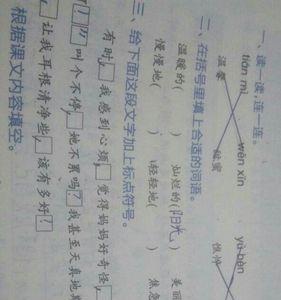 一、读一读,连一连。
tián mì wēn xīn yú bèn
温馨 甜蜜
二、在括号里填上合适的词语。
温暖的( ) 灿烂的(阳光) 美丽
慢慢地( ) 轻轻地( ) 焦急
三、给下面这段文字加上标点符号。
有时,我感到心烦,觉得妈妈好奇怪,
叫个不停,她不累吗?我甚至天真地
让我耳根清净些,该有多好?
根据课文内容填空。